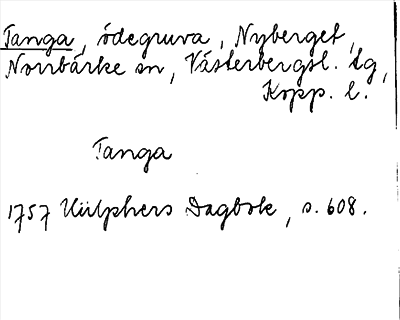 Tanga, ödegruva, Nyberget,
Norrbärke sn, Västerbergsl. dg,
Kopp. l.
Tanga
1757 Hülphers Dagbok, s. 608.